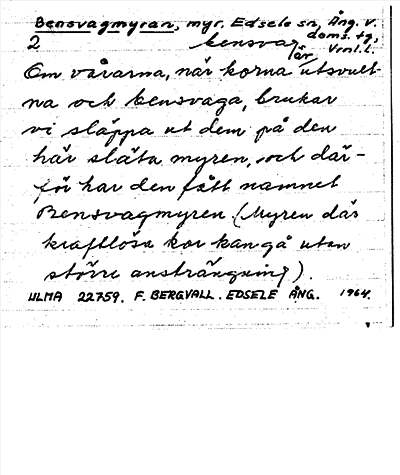 Bensvagmyran, myr, Edsele sn, Ång. v.
doms. tg,
2 bensvag Vrnl.l.
Om vårarna, när korna är utsvult-
na och bensvaga, brukar
vi släppa ut dem på den
här släta myren, och där-
för har den fått namnet
Bensvagmyren (Myren där
kraftlösa kor kan gå utan
större ansträngning).
ULMA 22759. F. BERGVALL. EDSELE ÅNG. 1964.